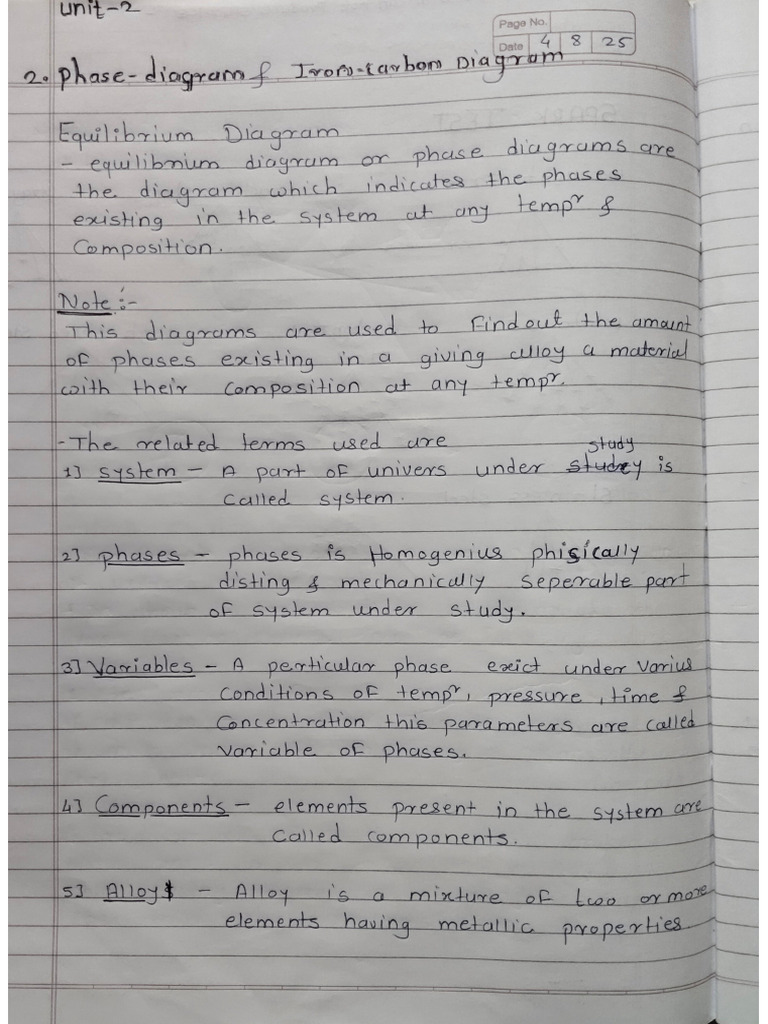 unit-2
Page No.
Date 4 8 25
2. Phase-diagram & Iron-carbon Diagram
Equilibrium Diagram
- equilibnium diagram or phase diagrams are
the diagram which indicates the phases
existing in the system at any tempr &
Composition.
Note:-
This diagrams are used to Findout the amount
of phases existing in a giving alloy a material
with their composition at any tempr.
- The related terms used are
study
1] system - A part of univers under is
called system.
2] phases - phases is Homogenius phisically
disting & mechanically seperable part
of system under study.
3] Variables - A perticular phase exict under varius
conditions of tempr, pressure, time &
Concentration this parameters are called
variable of phases.
4] Components - elements present in the system are
called components.
5] Alloy - Alloy is a mixture of two or more
elements having metallic properties